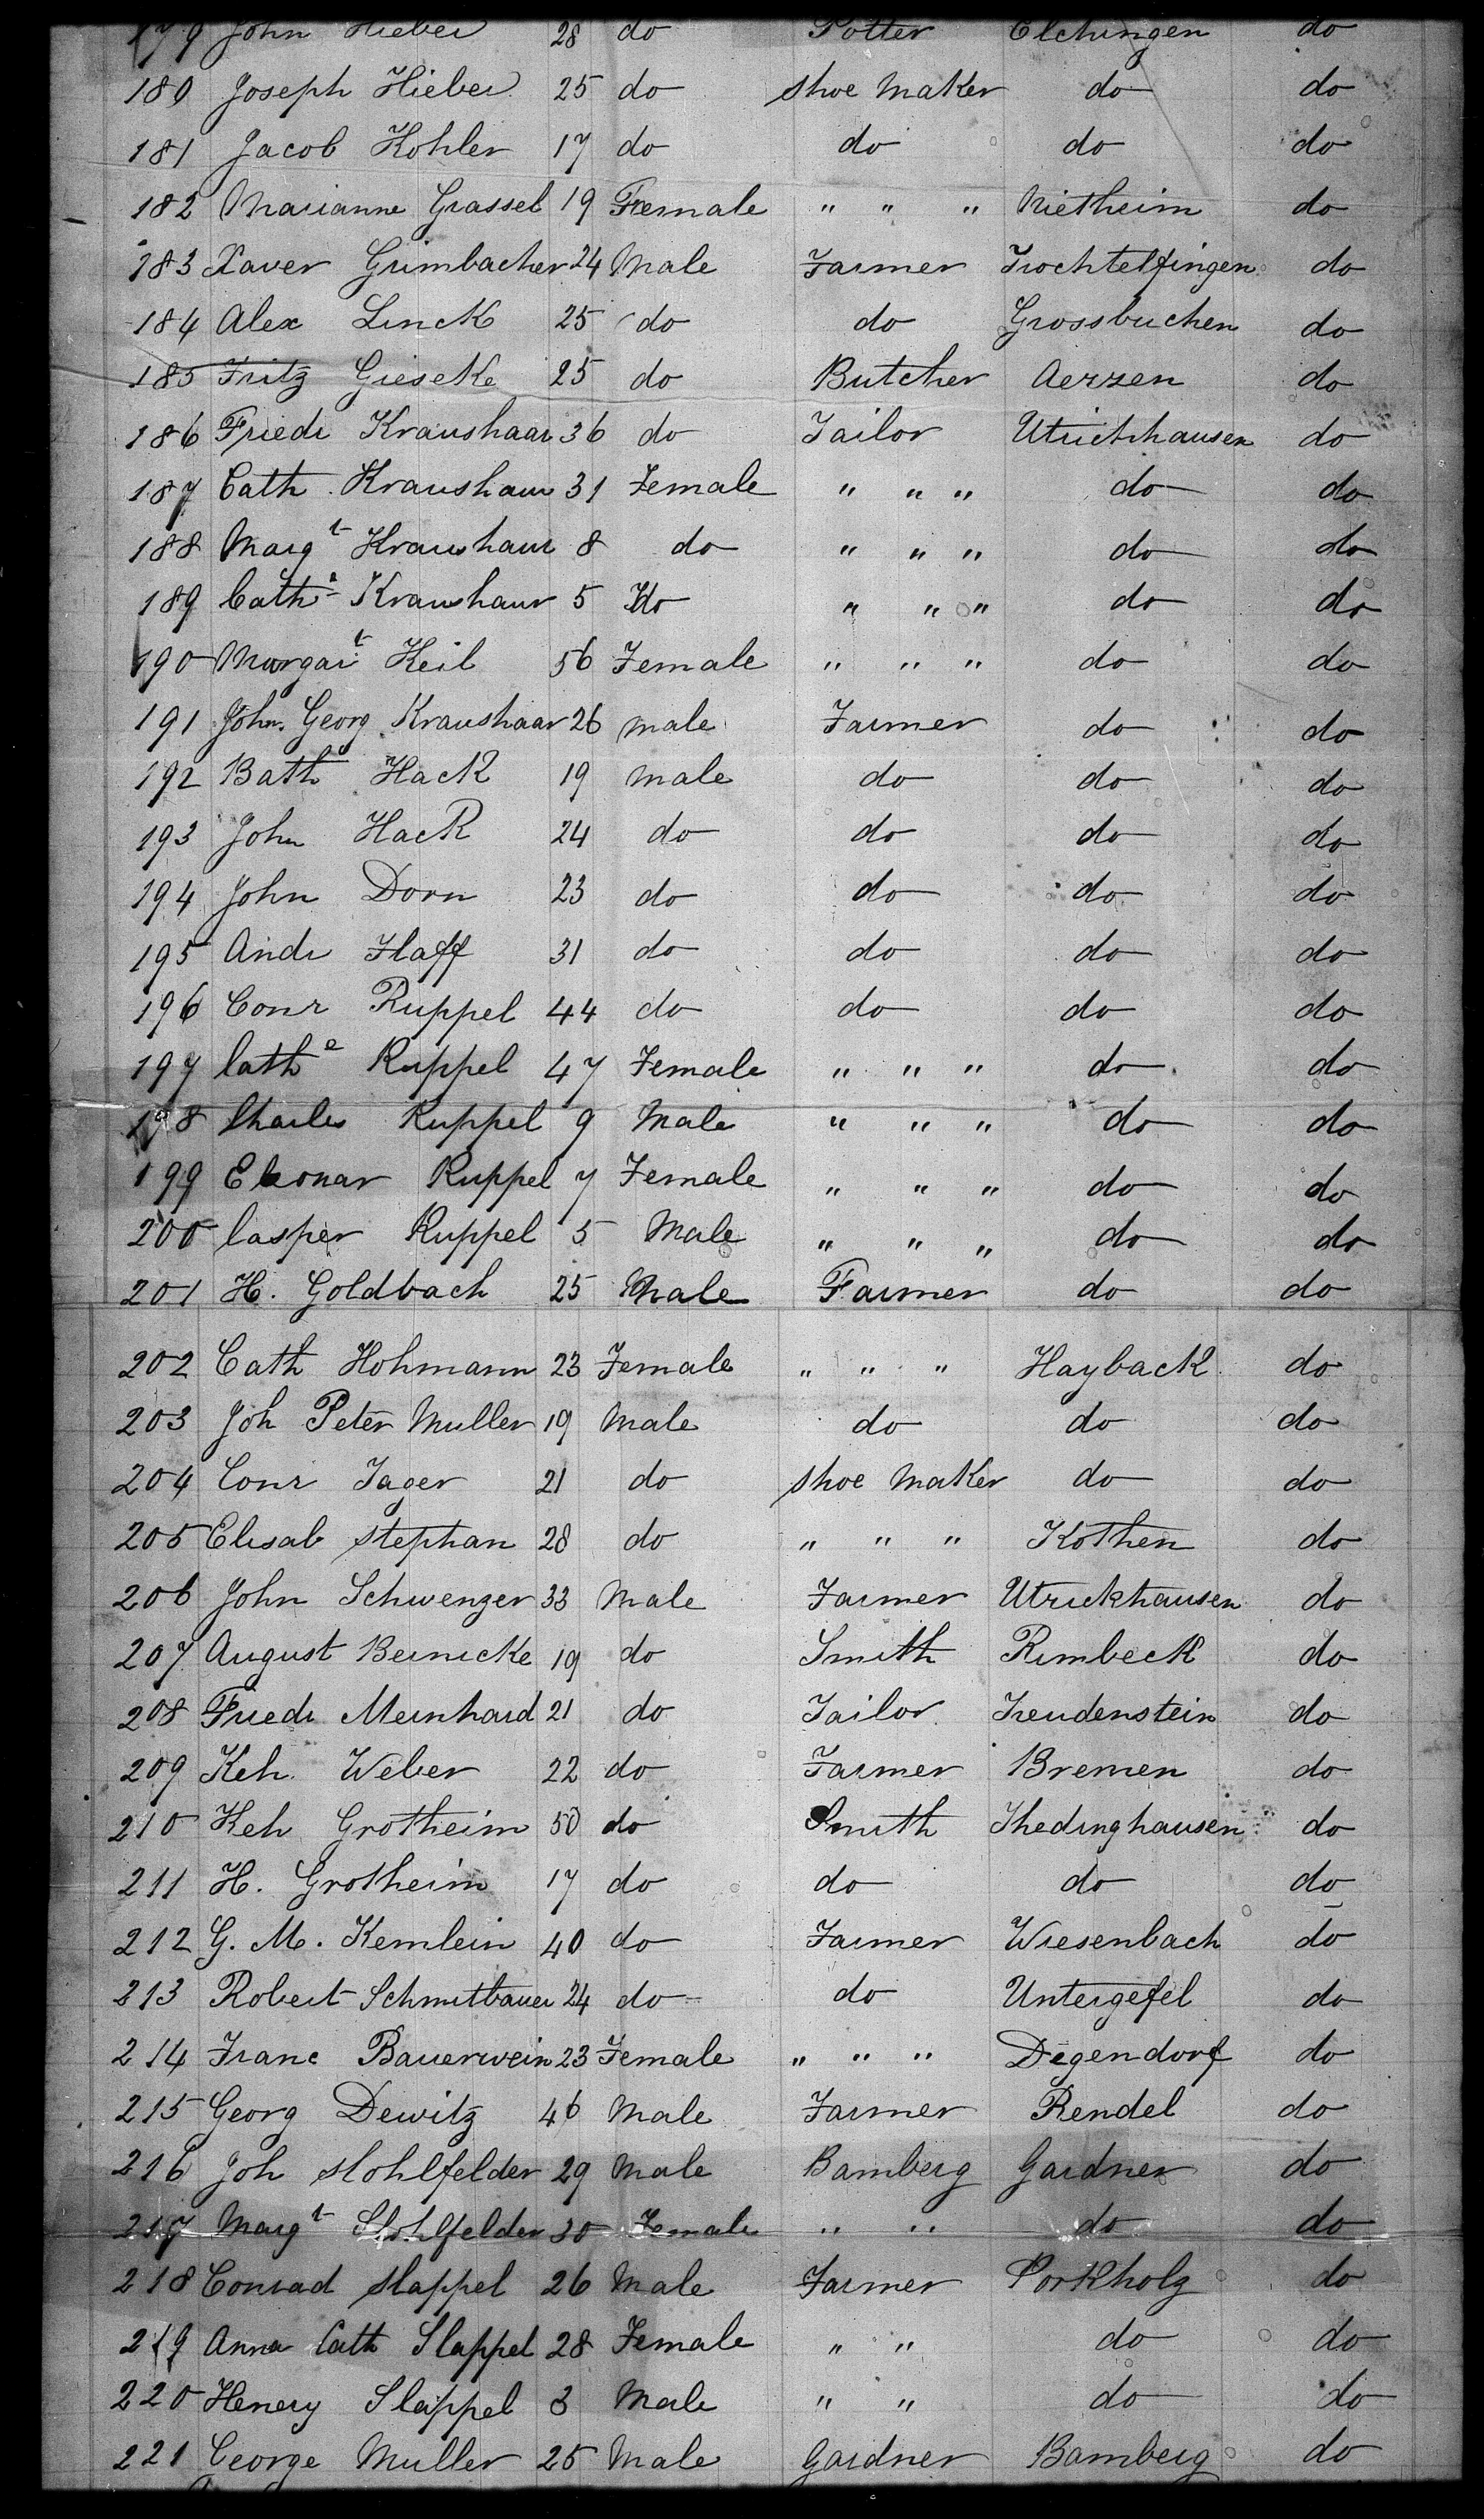 179 John Hieber 28 do Potter Elchingen do
180 Joseph Hieber 25 do shoe Maker do do
181 Jacob Kohler 17 do do do do
182 Marianne Grassel 19 Female " " " Nietheim do
183 Xaver Grimbacher 24 Male Farmer Trochtelfingen do
184 Alex Linck 25 do do Grossbuchen do
185 Fritz Gieseke 25 do Butcher Aerzen do
186 Friedr Kraushaar 36 do Tailor Utrichhausen do
187 Cath Kraushaar 31 Female " " " do do
188 Margt Kraushaar 8 do " " " do do
189 Cath Kraushaar 5 do " " " do do
190 Margart Keil 56 Female " " " do do
191 John. Georg Kraushaar 26 male Farmer do do
192 Bath Hack 19 male do do do
193 John Hack 24 do do do do
194 John Dorn 23 do do do do
195 Andr Haff 31 do do do do
196 Conr Ruppel 44 do do do do
197 Cathe Ruppel 47 Female " " " do do
198 Charles Ruppel 9 Male " " " do do
199 Eleonar Ruppel 7 Female " " " do do
200 Casper Ruppel 5 Male " " " do do
201 H. Goldbach 25 Male Farmer do do
202 Cath Hohmann 23 Female " " " Hayback do
203 Joh Peter Muller 19 Male do do do
204 Conr Jager 21 do shoe Maker do do
205 Elisab Stephan 28 do " " " Kothen do
206 John Schwenzer 33 Male Farmer Utrickhausen do
207 August Beinicke 19 do Smith Rimbeck do
208 Friedr Meinhard 21 do Tailor Treudenstein do
209 Keh Weber 22 do Farmer Bremen do
210 Keh Grotheim 50 do Smith Thedinghausen do
211 H. Grotheim 17 do do do do
212 G. M. Kemlein 40 do Farmer Wiesenbach do
213 Robert Schmitbauer 24 do do Untergefel do
214 Franc Bauerwein 23 Female " " " Degendorf do
215 Georg Dewitz 46 Male Farmer Rendel do
216 Joh Stohlfelder 29 Male Bamberg Gardner do
217 Margt Stohlfelder 30 Female " " do do
218 Conrad Slappel 26 Male Farmer Porkholz do
219 Anna Cath Slappel 28 Female " " do do
220 Henery Slappel 3 Male " " do do
221 George Muller 25 Male Gardner Bamberg do